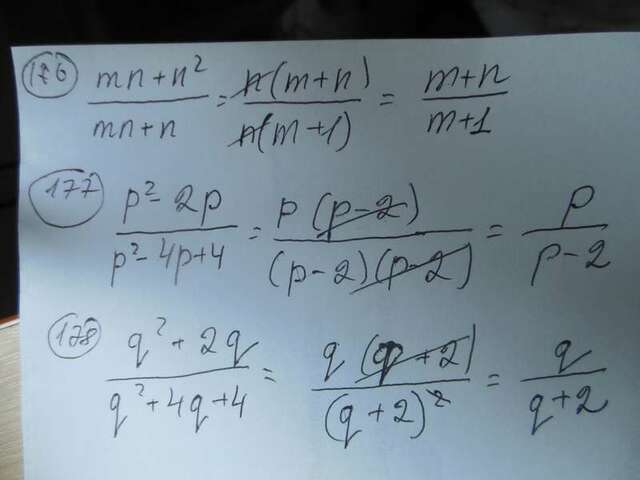 176 (mn+n²)/(mn+n) = n(m+n)/n(m+1) = (m+n)/(m+1)
177 (p²-2p)/(p²-4p+4) = p(p-2)/(p-2)(p-2) = p/(p-2)
178 (q²+2q)/(q²+4q+4) = q(q+2)/(q+2)² = q/(q+2)